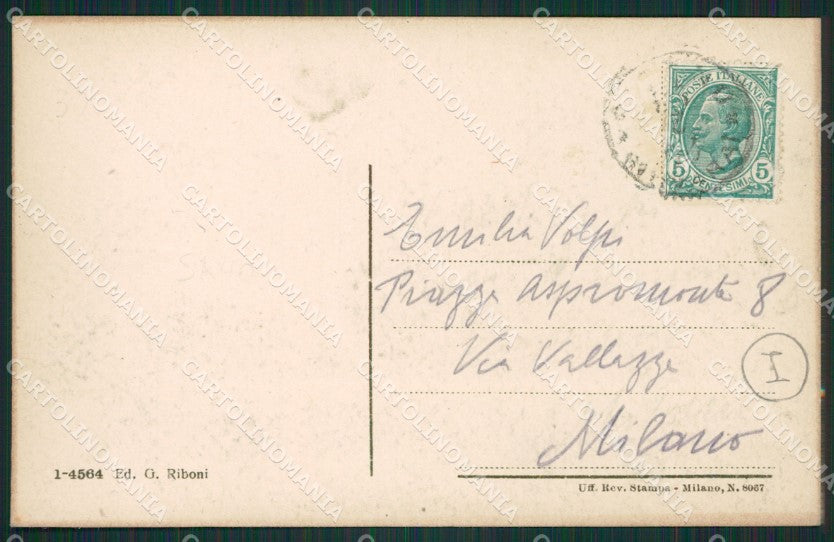 POSTE ITALIANE
5 5
CENTESIMI
Emilia Volpi
Piazza Aspromonte 8
Via Vallazze
I
Milano
1-4564 Ed. G. Riboni
Uff. Rev. Stampa - Milano, N. 8067
CARTOLINOMANIA